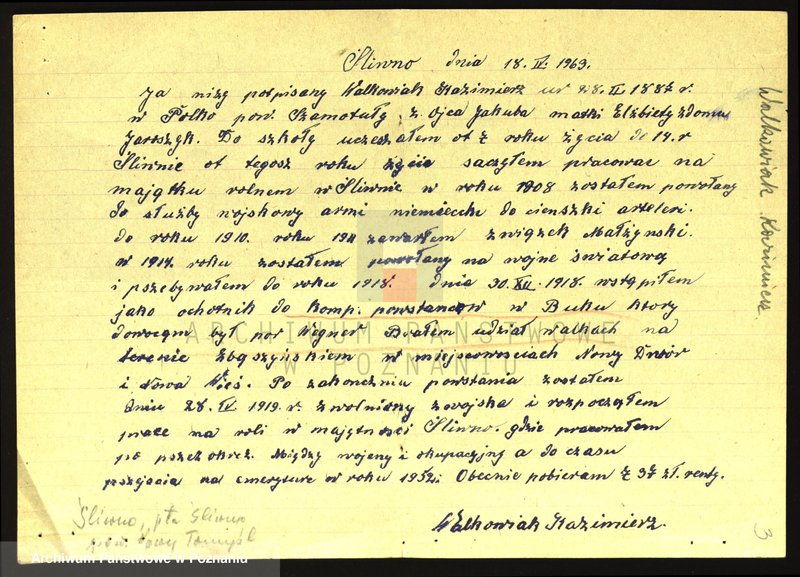 Śliwno dnia 18. IV. 1963.
Ja niży potpisany Walkowiak Kazimierz ur 28. II. 1887 r.
w Polko pow. Szamotuły z. ojca Jakuba matki Elżbiety zdomu
Jaroszyk. Do szkoły uczeszałem ot 7 roku życia do 14. r
Śliwnie ot tegosz roku życia saczęłem pracowac na
majątku rolnem w Śliwnie w roku 1908 zostałem powołany
do służby wojskowy armi niemiecki do cienszki arteleri.
do roku 1910. roku 1911 zawarłem związek Małżynski.
w 1914. roku zostałem powołany na wojne światową
i pszebywałem do roku 1918. dnia 30. XII. 1918. wstąpiłem
jako ochotnik do komp. powstancow w Buku ktory
dowocqm był por Wegner Brałem udział walkach na
terenie Zbąszyńskiem w miejscowosciach Nowy Dwór
i Nowa Wieś. Po zakonczniu powstania zostałem
dniu 28. IV 1919. r. zwolniony zwojska i rozpoczęłem
prace na roli w majętności Śliwno. gdzie pracowałem
po pszez okres. Między wojeny i okupacyjną a do czasu
pszejscia na emeryture w roku 1952. Obecnie pobieram 737 zł. renty.
Walkowiak Kazimierz.
Walkowiak Kazimierz
Śliwno, pta Śliwno
pow. Nowy Tomyśl
3
ARCHIWUM PAŃSTWOWE
W POZNANIU
Archiwum Państwowe w Poznaniu